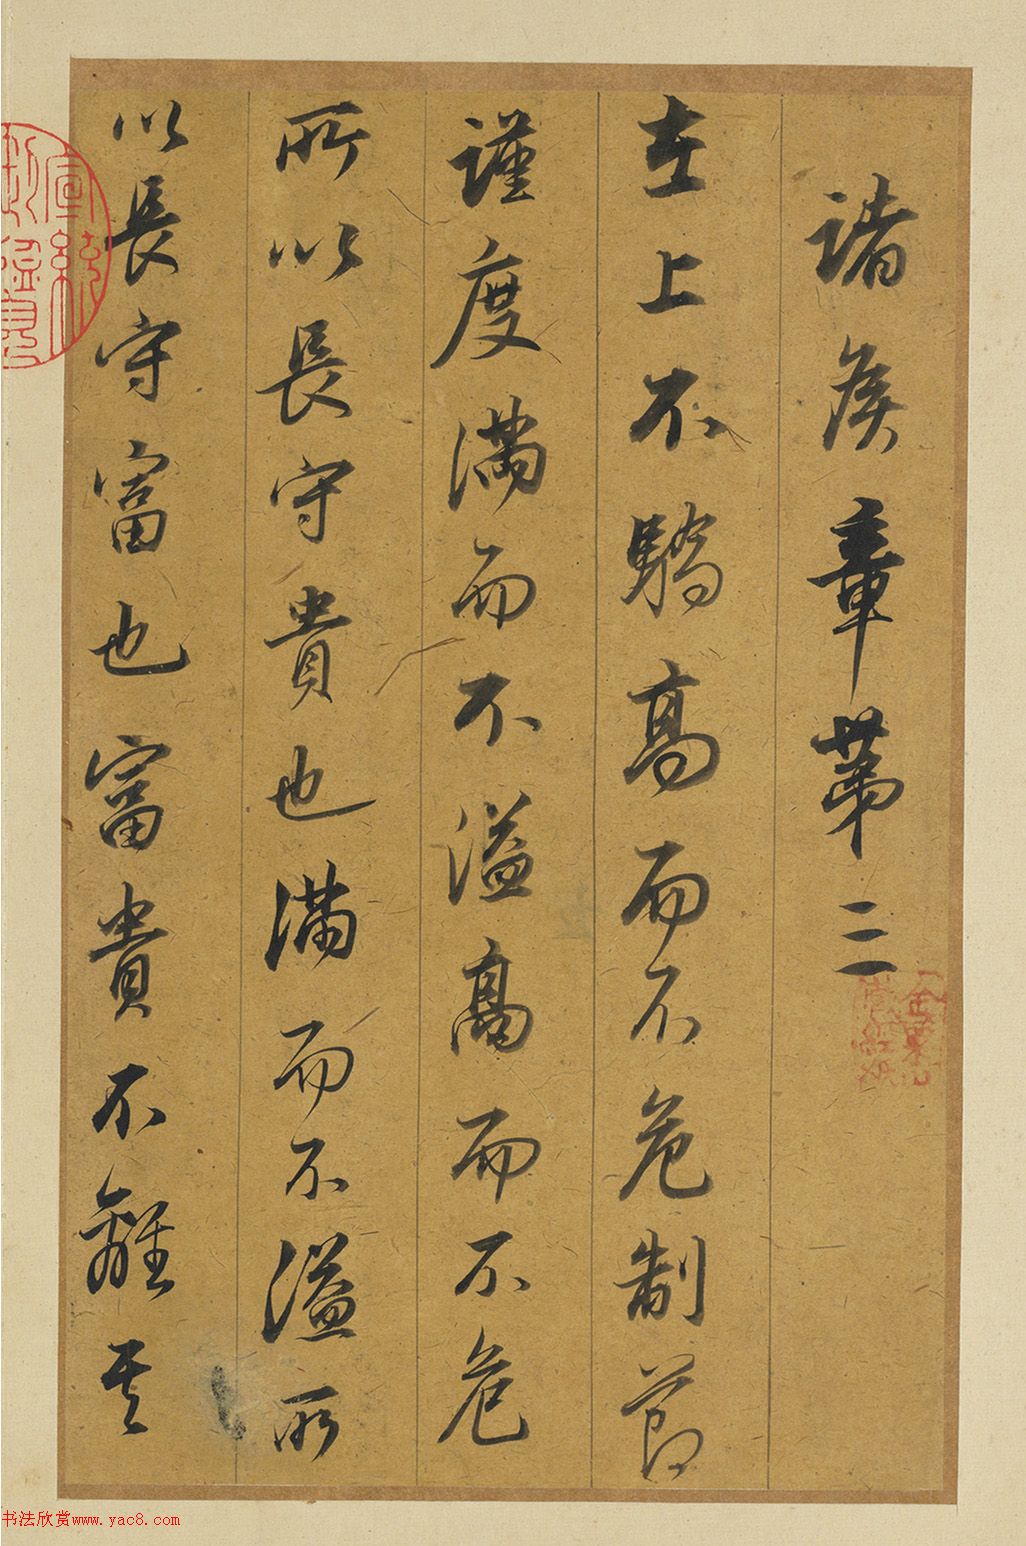 諸侯章第三
在上不驕高而不危制節
謹度滿而不溢高而不危
所以長守貴也滿而不溢所
以長守富也富貴不離其
书法欣赏www.yac8.com